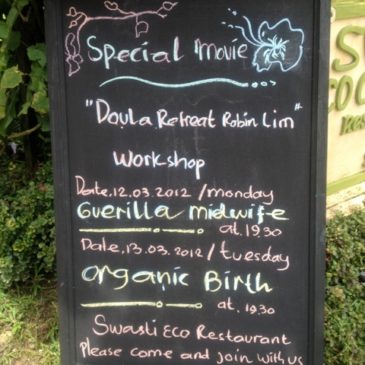 Special movie
"Doula Retreat Robin Lim"
Workshop
Date.12.03.2012 /monday
Guerilla midwife
at. 19.30
Date.13.03.2012/ tuesday
Organic Birth
at. 19.30
Swasti Eco Restaurant
Please come and join with us